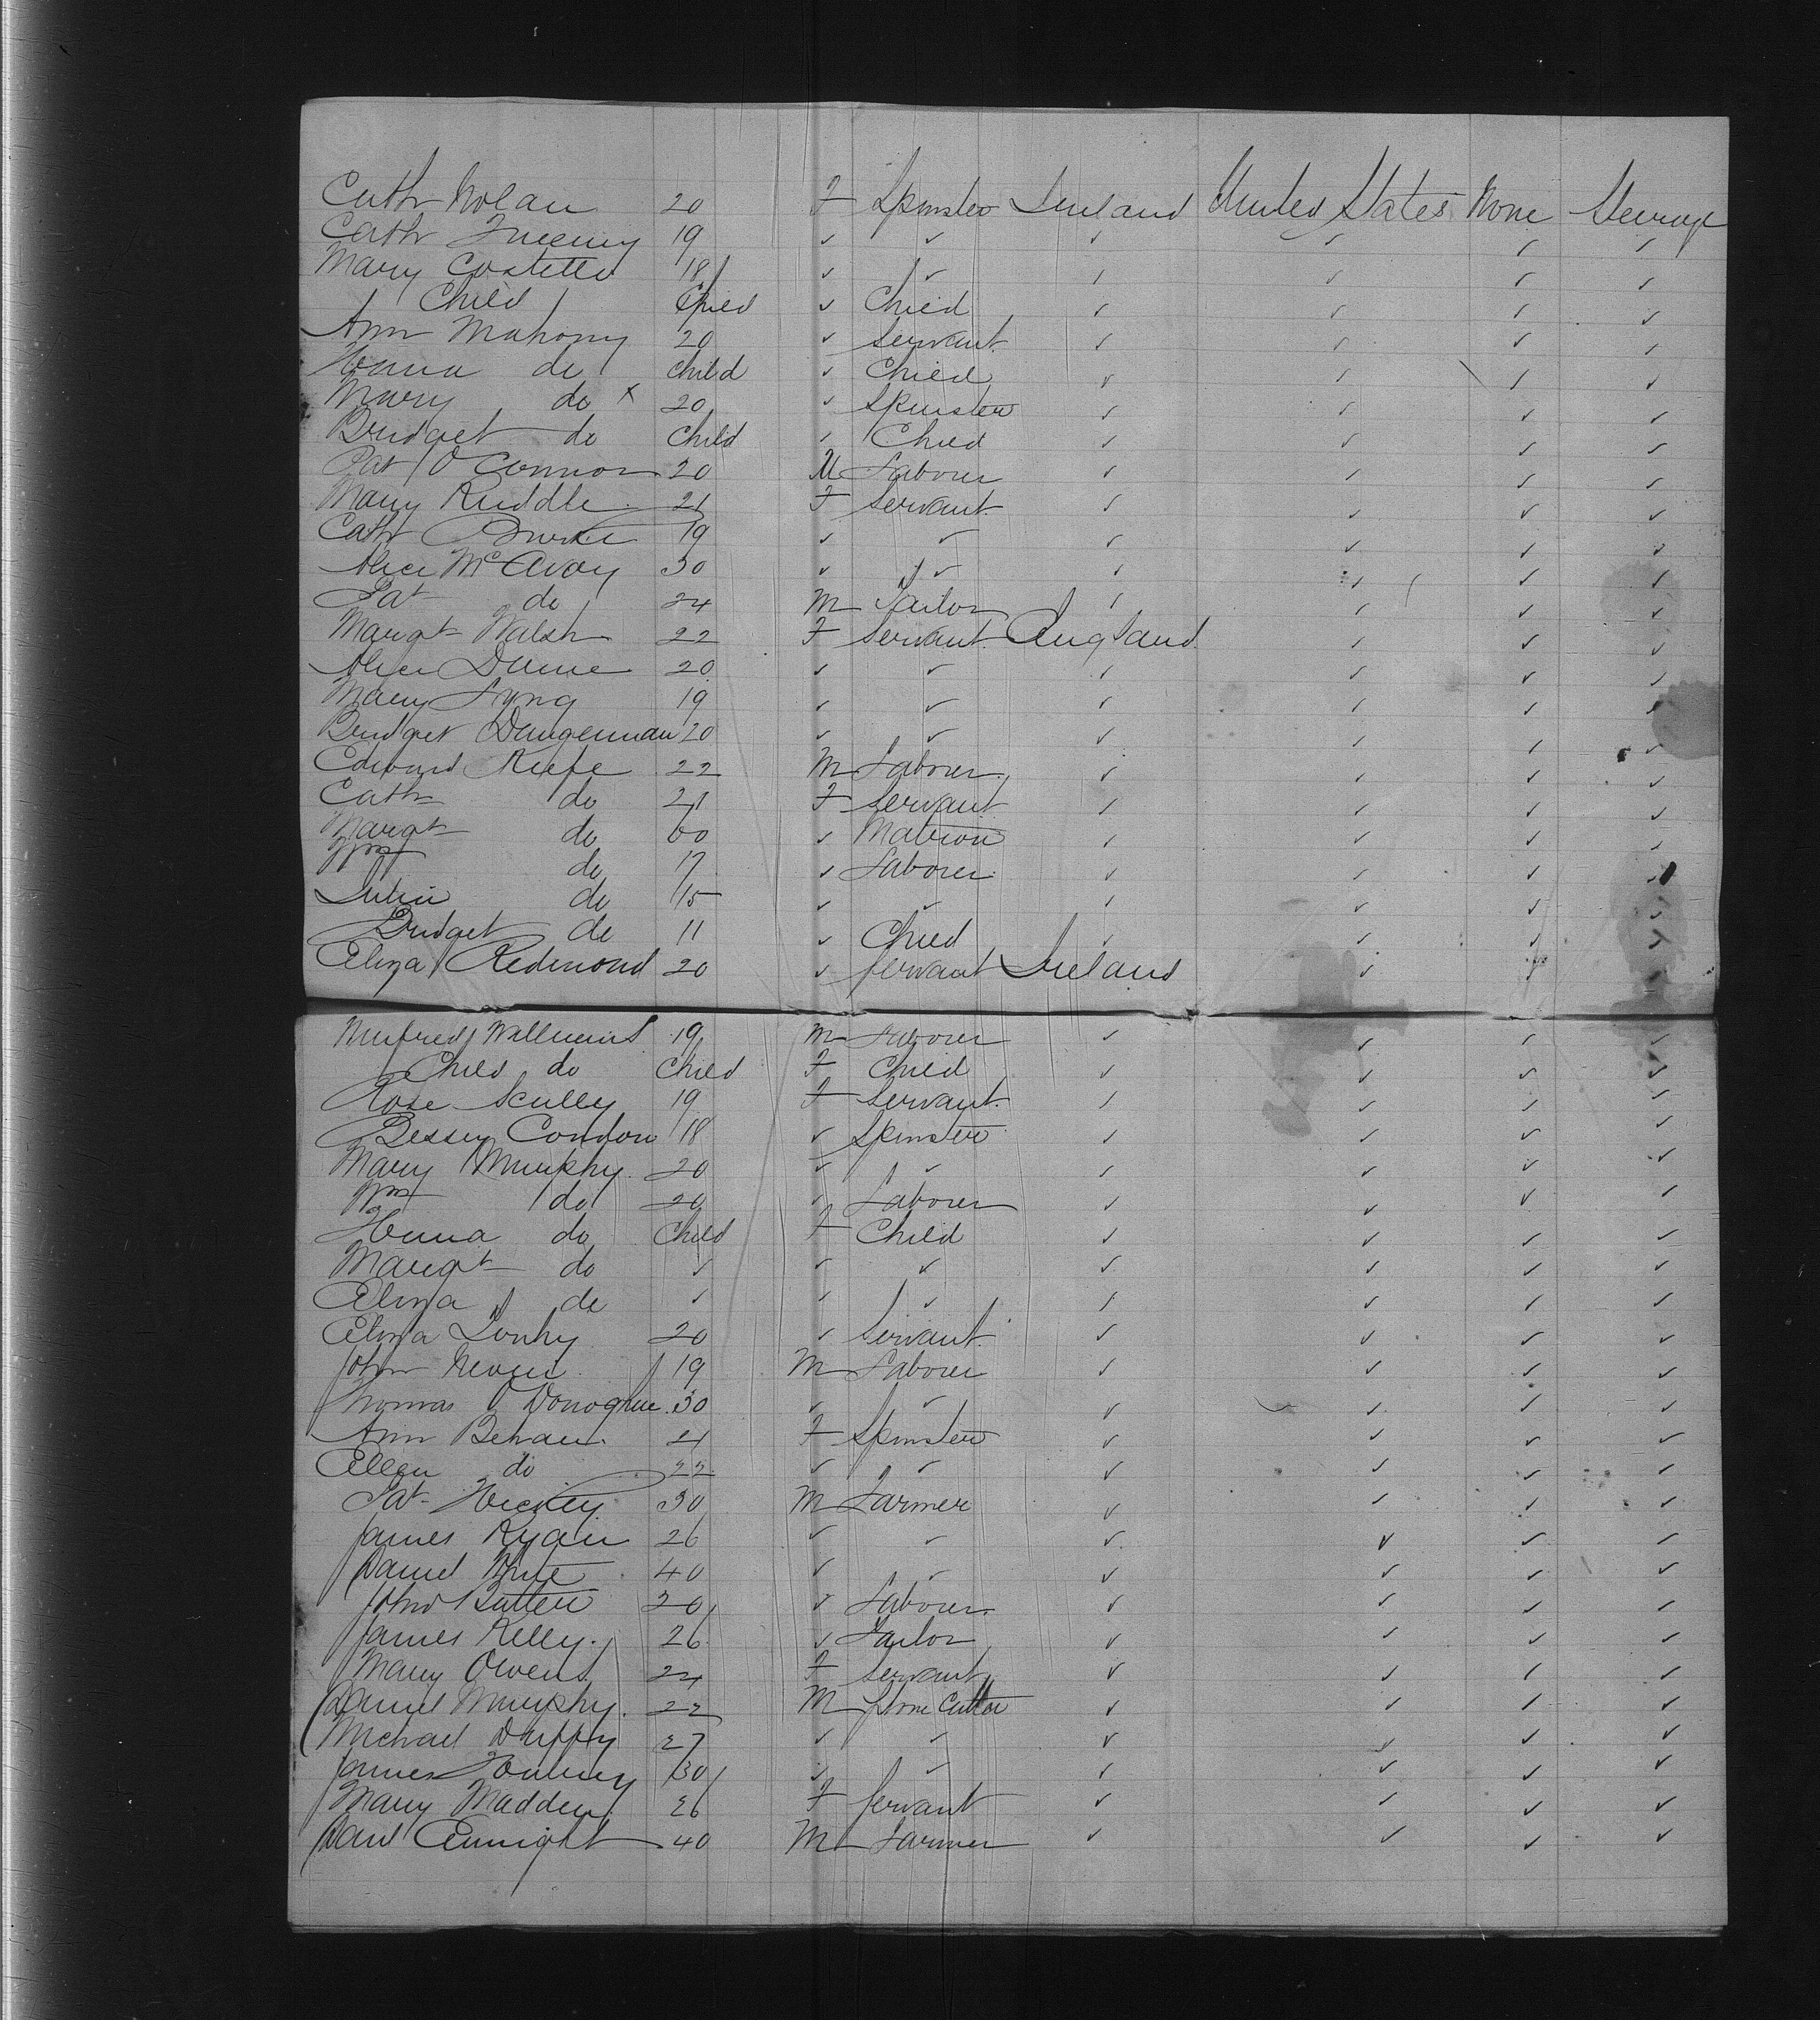 Cath Nolan 20 F Spinster Ireland United States None Steerage
Cath 19 ✓ ✓ ✓ ✓ ✓ ✓
Mary Costello 18 ✓ ✓ ✓ ✓ ✓ ✓
Child Child ✓ Child ✓ ✓ ✓ ✓
Ann Mahony 20 ✓ Servant ✓ ✓ ✓ ✓
Hanna do Child ✓ Child ✓ ✓ ✓ ✓
Mary do x 20 ✓ Spinster ✓ ✓ ✓ ✓
Bridget do Child ✓ Child ✓ ✓ ✓ ✓
Pat O'Connor 20 M Laborer ✓ ✓ ✓ ✓
Mary Ruddle 21 F Servant ✓ ✓ ✓ ✓
Cath Burke 19 ✓ ✓ ✓ ✓ ✓ ✓
Alice McAvoy 30 ✓ ✓ ✓ ✓ ✓ ✓
Pat do 24 M Tailor ✓ ✓ ✓ ✓
Margt Walsh 22 F Servant England ✓ ✓ ✓
Alice Dunne 20 ✓ ✓ ✓ ✓ ✓ ✓
Mary Lyng 19 ✓ ✓ ✓ ✓ ✓ ✓
Bridget 20 ✓ ✓ ✓ ✓ ✓ ✓
Edward Keefe 22 M Laborer ✓ ✓ ✓ ✓
Cath do 21 F Servant ✓ ✓ ✓ ✓
Margt do 60 ✓ Matron ✓ ✓ ✓ ✓
Wm do 17 ✓ Laborer ✓ ✓ ✓ ✓
Julia do 15 ✓ ✓ ✓ ✓ ✓ ✓
Bridget do 11 ✓ Child ✓ ✓ ✓ ✓
Eliza Redmond 20 ✓ Servant Ireland ✓ ✓ ✓
Williams 19 M Laborer ✓ ✓ ✓ ✓
Child do Child F Child ✓ ✓ ✓ ✓
Rose Scully 19 F Servant ✓ ✓ ✓ ✓
Bessey Condon 18 ✓ Spinster ✓ ✓ ✓ ✓
Mary Murphy 20 ✓ ✓ ✓ ✓ ✓ ✓
Wm do 20 ✓ Laborer ✓ ✓ ✓ ✓
Hanna do Child F Child ✓ ✓ ✓ ✓
Margt do ✓ ✓ ✓ ✓ ✓ ✓ ✓
Eliza do ✓ ✓ ✓ ✓ ✓ ✓ ✓
Eliza 20 ✓ Servant ✓ ✓ ✓ ✓
John 19 M Laborer ✓ ✓ ✓ ✓
Thomas O'Donoghue 30 ✓ ✓ ✓ ✓ ✓ ✓
Ann Behan 21 F Spinster ✓ ✓ ✓ ✓
Ellen do 22 ✓ ✓ ✓ ✓ ✓ ✓
Pat Hickey 30 M Farmer ✓ ✓ ✓ ✓
James Ryan 26 ✓ ✓ ✓ ✓ ✓ ✓
Daniel 40 ✓ ✓ ✓ ✓ ✓ ✓
John 20 ✓ Laborer ✓ ✓ ✓ ✓
James Kelly 26 ✓ Tailor ✓ ✓ ✓ ✓
Mary Owens 24 F Servant ✓ ✓ ✓ ✓
Daniel Murphy 22 M Stone Cutter ✓ ✓ ✓ ✓
Michael Duffy 27 ✓ ✓ ✓ ✓ ✓ ✓
James 30 ✓ ✓ ✓ ✓ ✓ ✓
Mary Madden 26 F Servant ✓ ✓ ✓ ✓
Danl Enright 40 M Farmer ✓ ✓ ✓ ✓